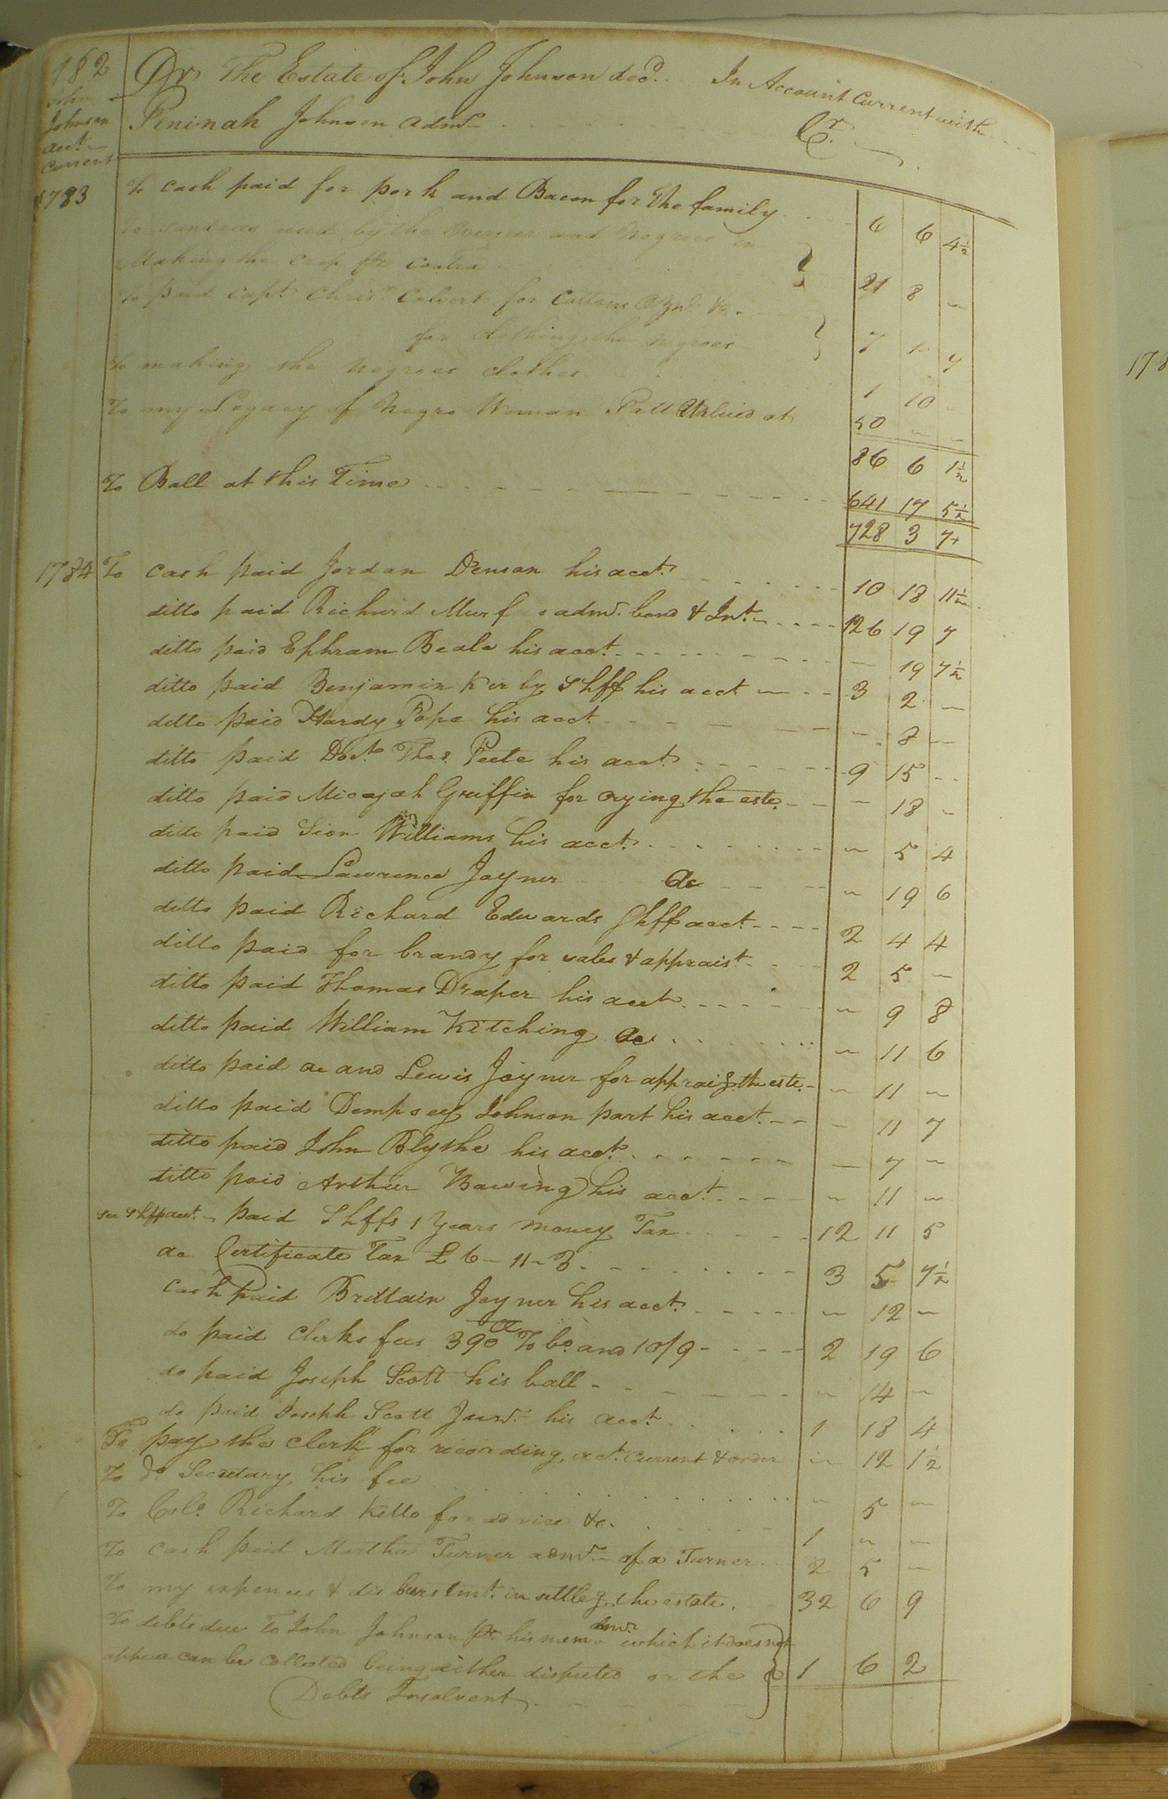 182 Dr. The Estate of John Johnson decd. In Account Current with
John Johnson acct. Current
Peninah Johnson admr. Cr.
1783 To cash paid for pork and Bacon for the family 6 6 4½
To Sundries used by the Overseer and Negroes in
Making the crop pr contra 21 8 –
To paid Capt. Chris. Calvert for Cottons &c.
for clothing the Negroes 7 1 9
To making the Negroes clothes 1 10 –
To my Legacy of Negro Woman Patt Valued at 50 – –
86 6 1½
To Ball at this Time 641 17 5½
728 3 7
1784 To cash paid Jordan Denson his acct. 10 18 11½
ditto paid Richard Murf admr. bond & Int. 126 19 7
ditto paid Ephram Beale his acct. – 19 7½
ditto paid Benjamin Ker by Shff his acct 3 2 –
ditto paid Hardy Pope his acct. – 8 –
ditto paid Doct. Thos. Peete his acct. 9 15 –
ditto paid Micajah Griffin for crying the este. – 18 –
ditto paid Sion Williams his acct. – 5 4
ditto paid Lawrence Joyner do – 19 6
ditto paid Richard Edwards Shff acct. 2 4 4
ditto paid for brandy for sales & appraist. 2 5 –
ditto paid Thomas Draper his acct – 9 8
ditto paid William Kitching do – 11 6
ditto paid do and Lewis Joyner for appraisg. the este. – 11 –
ditto paid Dempsey Johnson part his acct. – 11 7
ditto paid John Blythe his acct. – 7 –
ditto paid Arthur his acct. – 11 –
see Shff acct. paid Shffs 1 Years money Tax 12 11 5
do Certificate Tax £ 6–11–3 3 5 7½
Cash paid Brittain Joyner his acct. – 12 –
do paid Clerks fees 390 lb. Tobo. and 10/9 2 19 6
do paid Joseph Scott his ball – 14 –
do paid Joseph Scott Junr. his acct. 1 18 4
To pay the clerk for recording act. current & order – 12 1½
To do Secretary his fee – 5 –
To Colo. Richard Kello for advice &c. 1 – –
To cash paid Martha Turner admr. of a Turner 2 5 –
To my expences & disbursemts. in settleg. the estate. 32 6 9
To debts due To John Johnson pr. his mem which it does not
appear can be Collected being either disputed or the 1 6 2
Debts Insolvent
178